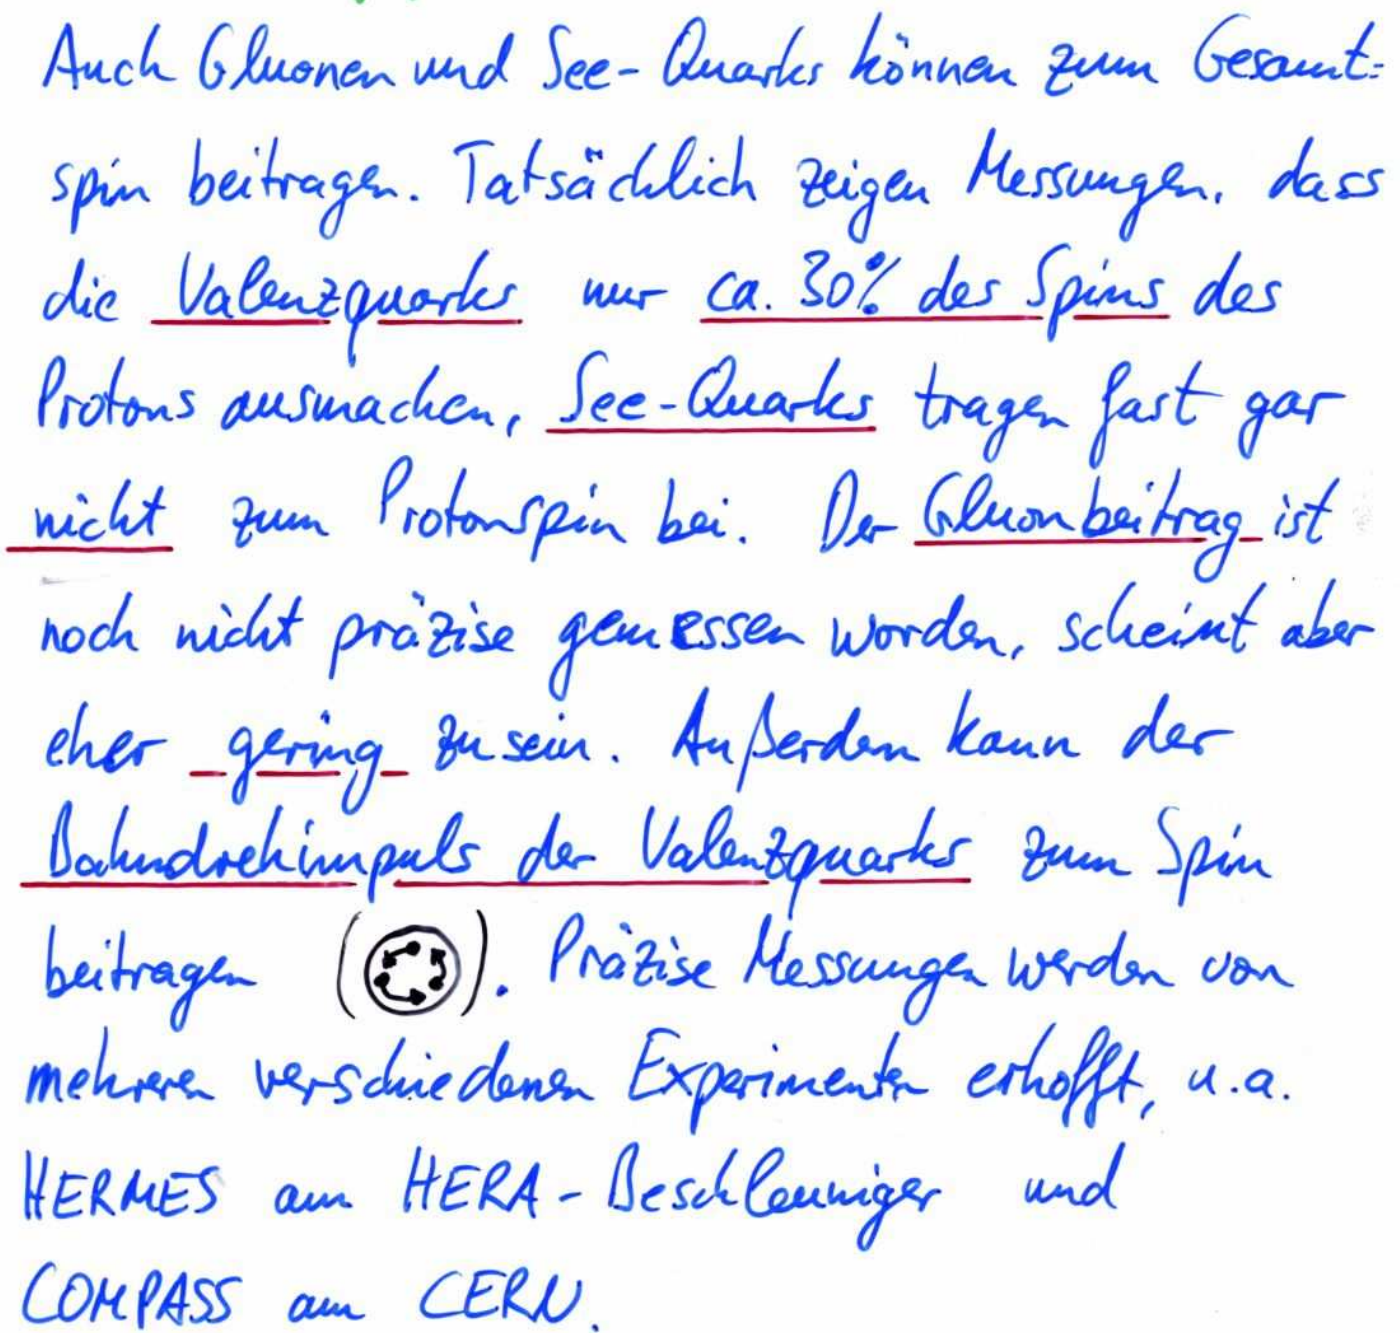 Auch Gluonen und See-Quarks können zum Gesamt-
spin beitragen. Tatsächlich zeigen Messungen, dass
die Valenzquarks nur ca. 30% des Spins des
Protons ausmachen, See-Quarks tragen fast gar
nicht zum Protonspin bei. Der Gluonbeitrag ist
noch nicht präzise gemessen worden, scheint aber
eher gering zu sein. Außerdem kann der
Bahndrehimpuls der Valenzquarks zum Spin
beitragen ( ). Präzise Messungen werden von
mehreren verschiedenen Experimenten erhofft, u.a.
HERMES am HERA-Beschleuniger und
COMPASS am CERN.